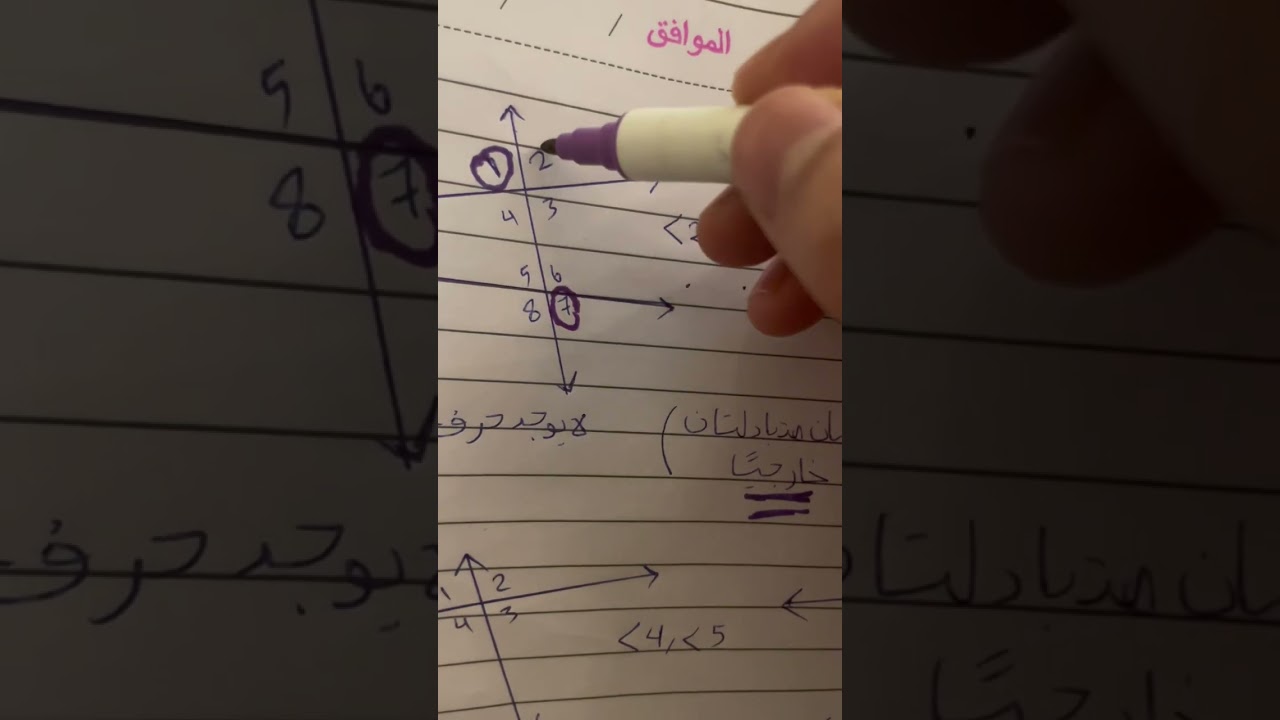 الموافق / /
1 2
4 3
<2
5 6
8 7
متبادلتان ) لا يوجد حرف
خارجيًا
1 2
4 3
<4,<5